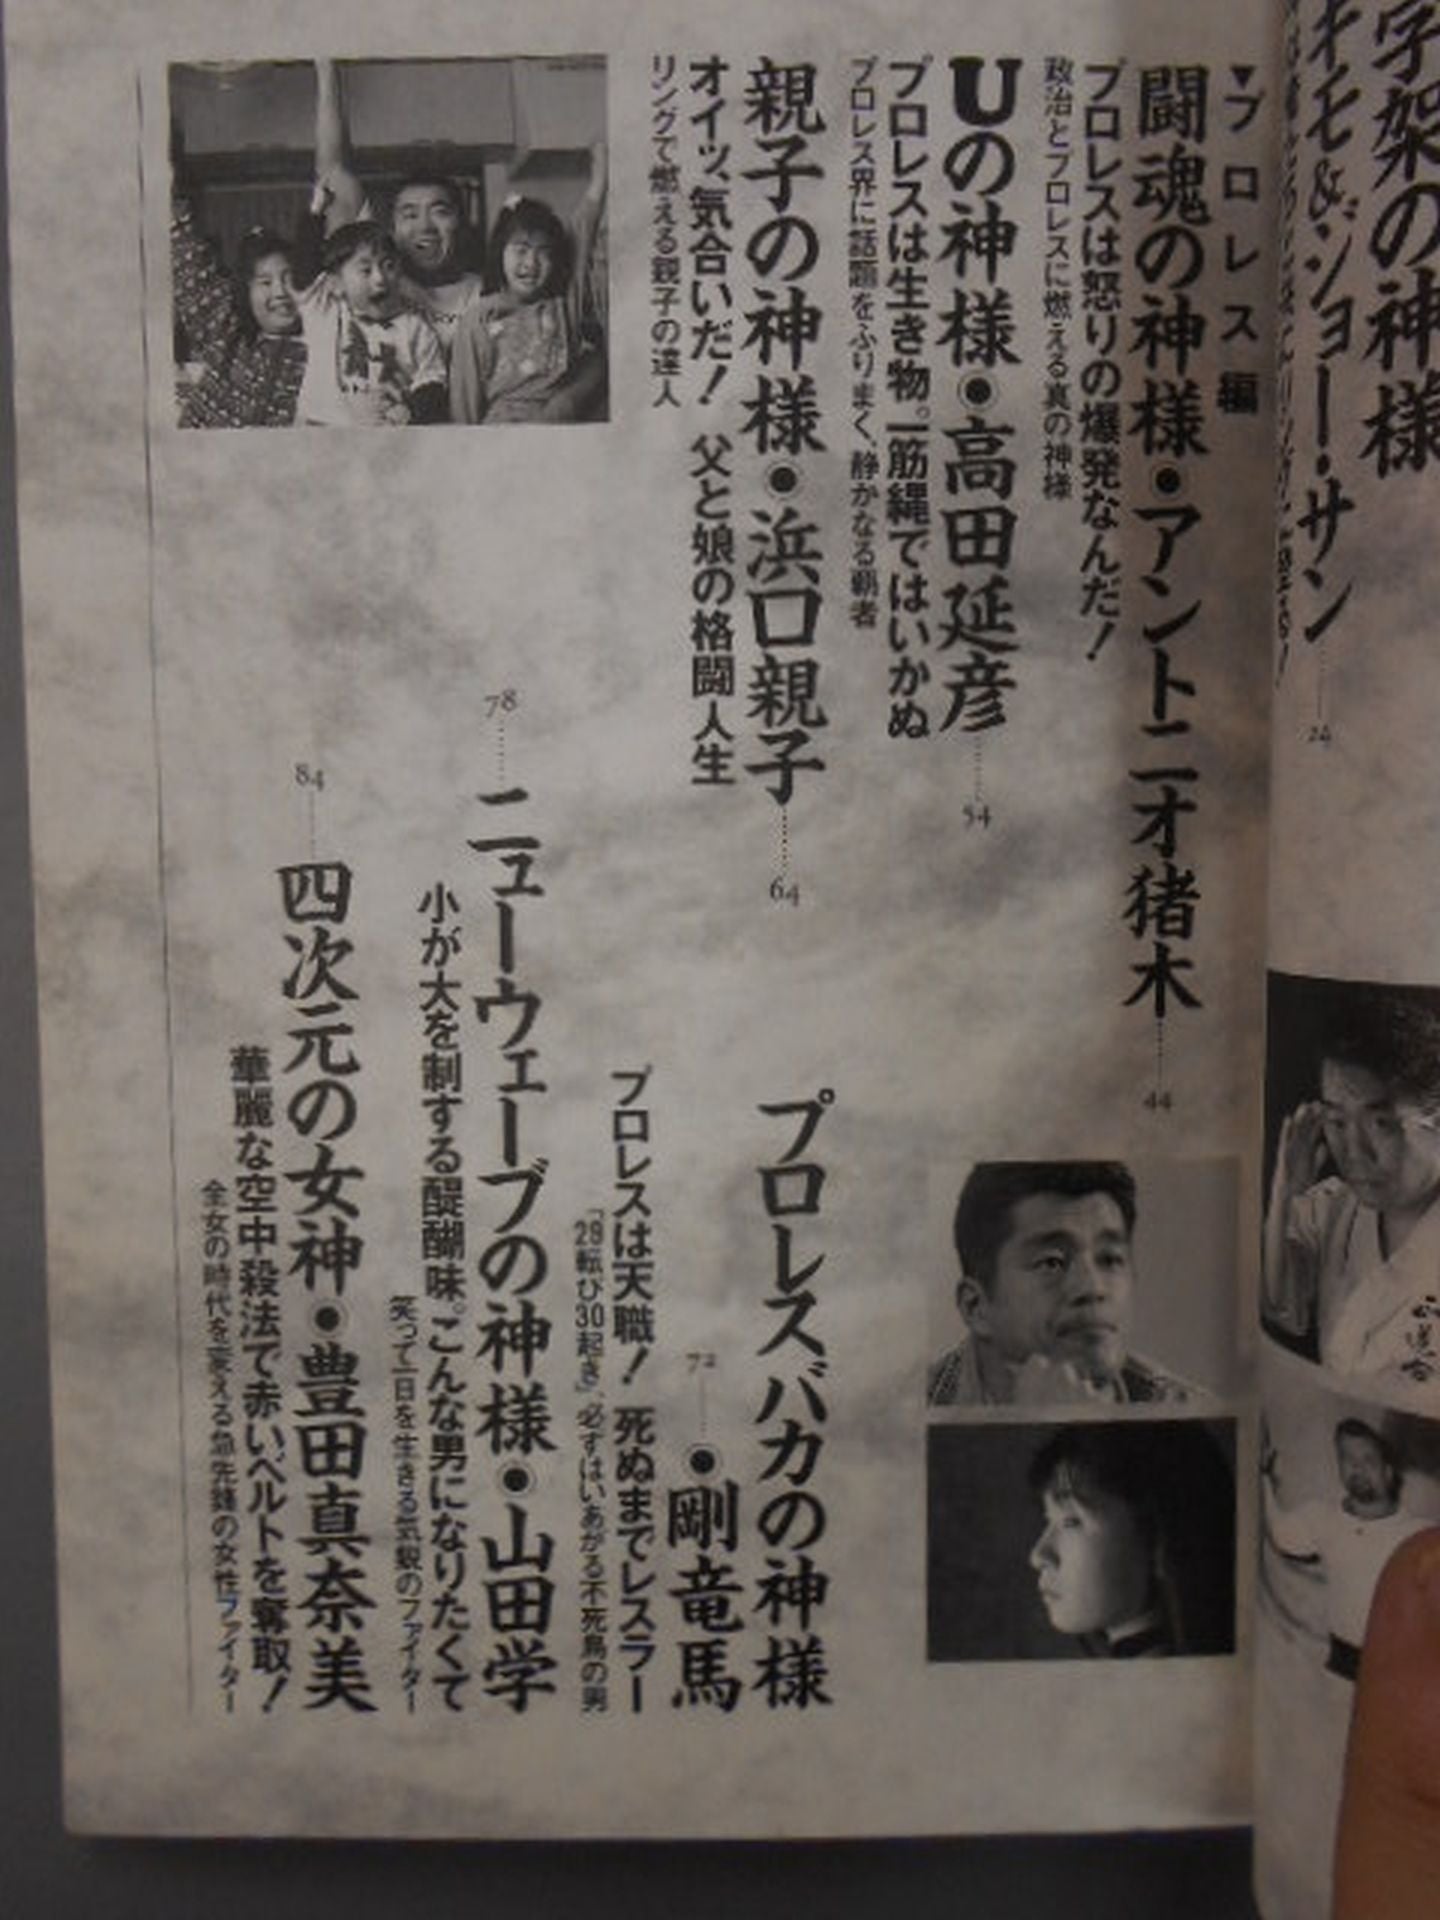 字架の神様
オモ&ジョー・サン
24
▼プロレス編
闘魂の神様●アントニオ猪木
44
プロレスは怒りの爆発なんだ!
政治とプロレスに燃える真の神様
Uの神様●高田延彦
54
プロレスは生き物。一筋縄ではいかぬ
プロレス界に話題をふりまく、静かなる覇者
親子の神様●浜口親子
64
オイッ、気合いだ! 父と娘の格闘人生
リングで燃える親子の達人
プロレスバカの神様
●剛竜馬
72
プロレスは天職! 死ぬまでレスラー
「29転び30起き」、必ずはいあがる不死鳥の男
ニューウェーブの神様●山田学
78
小が大を制する醍醐味。こんな男になりたくて
笑って一日を生きる気鋭のファイター
四次元の女神●豊田真奈美
84
華麗な空中殺法で赤いベルトを奪取!
全女の時代を変える急先鋒の女性ファイター